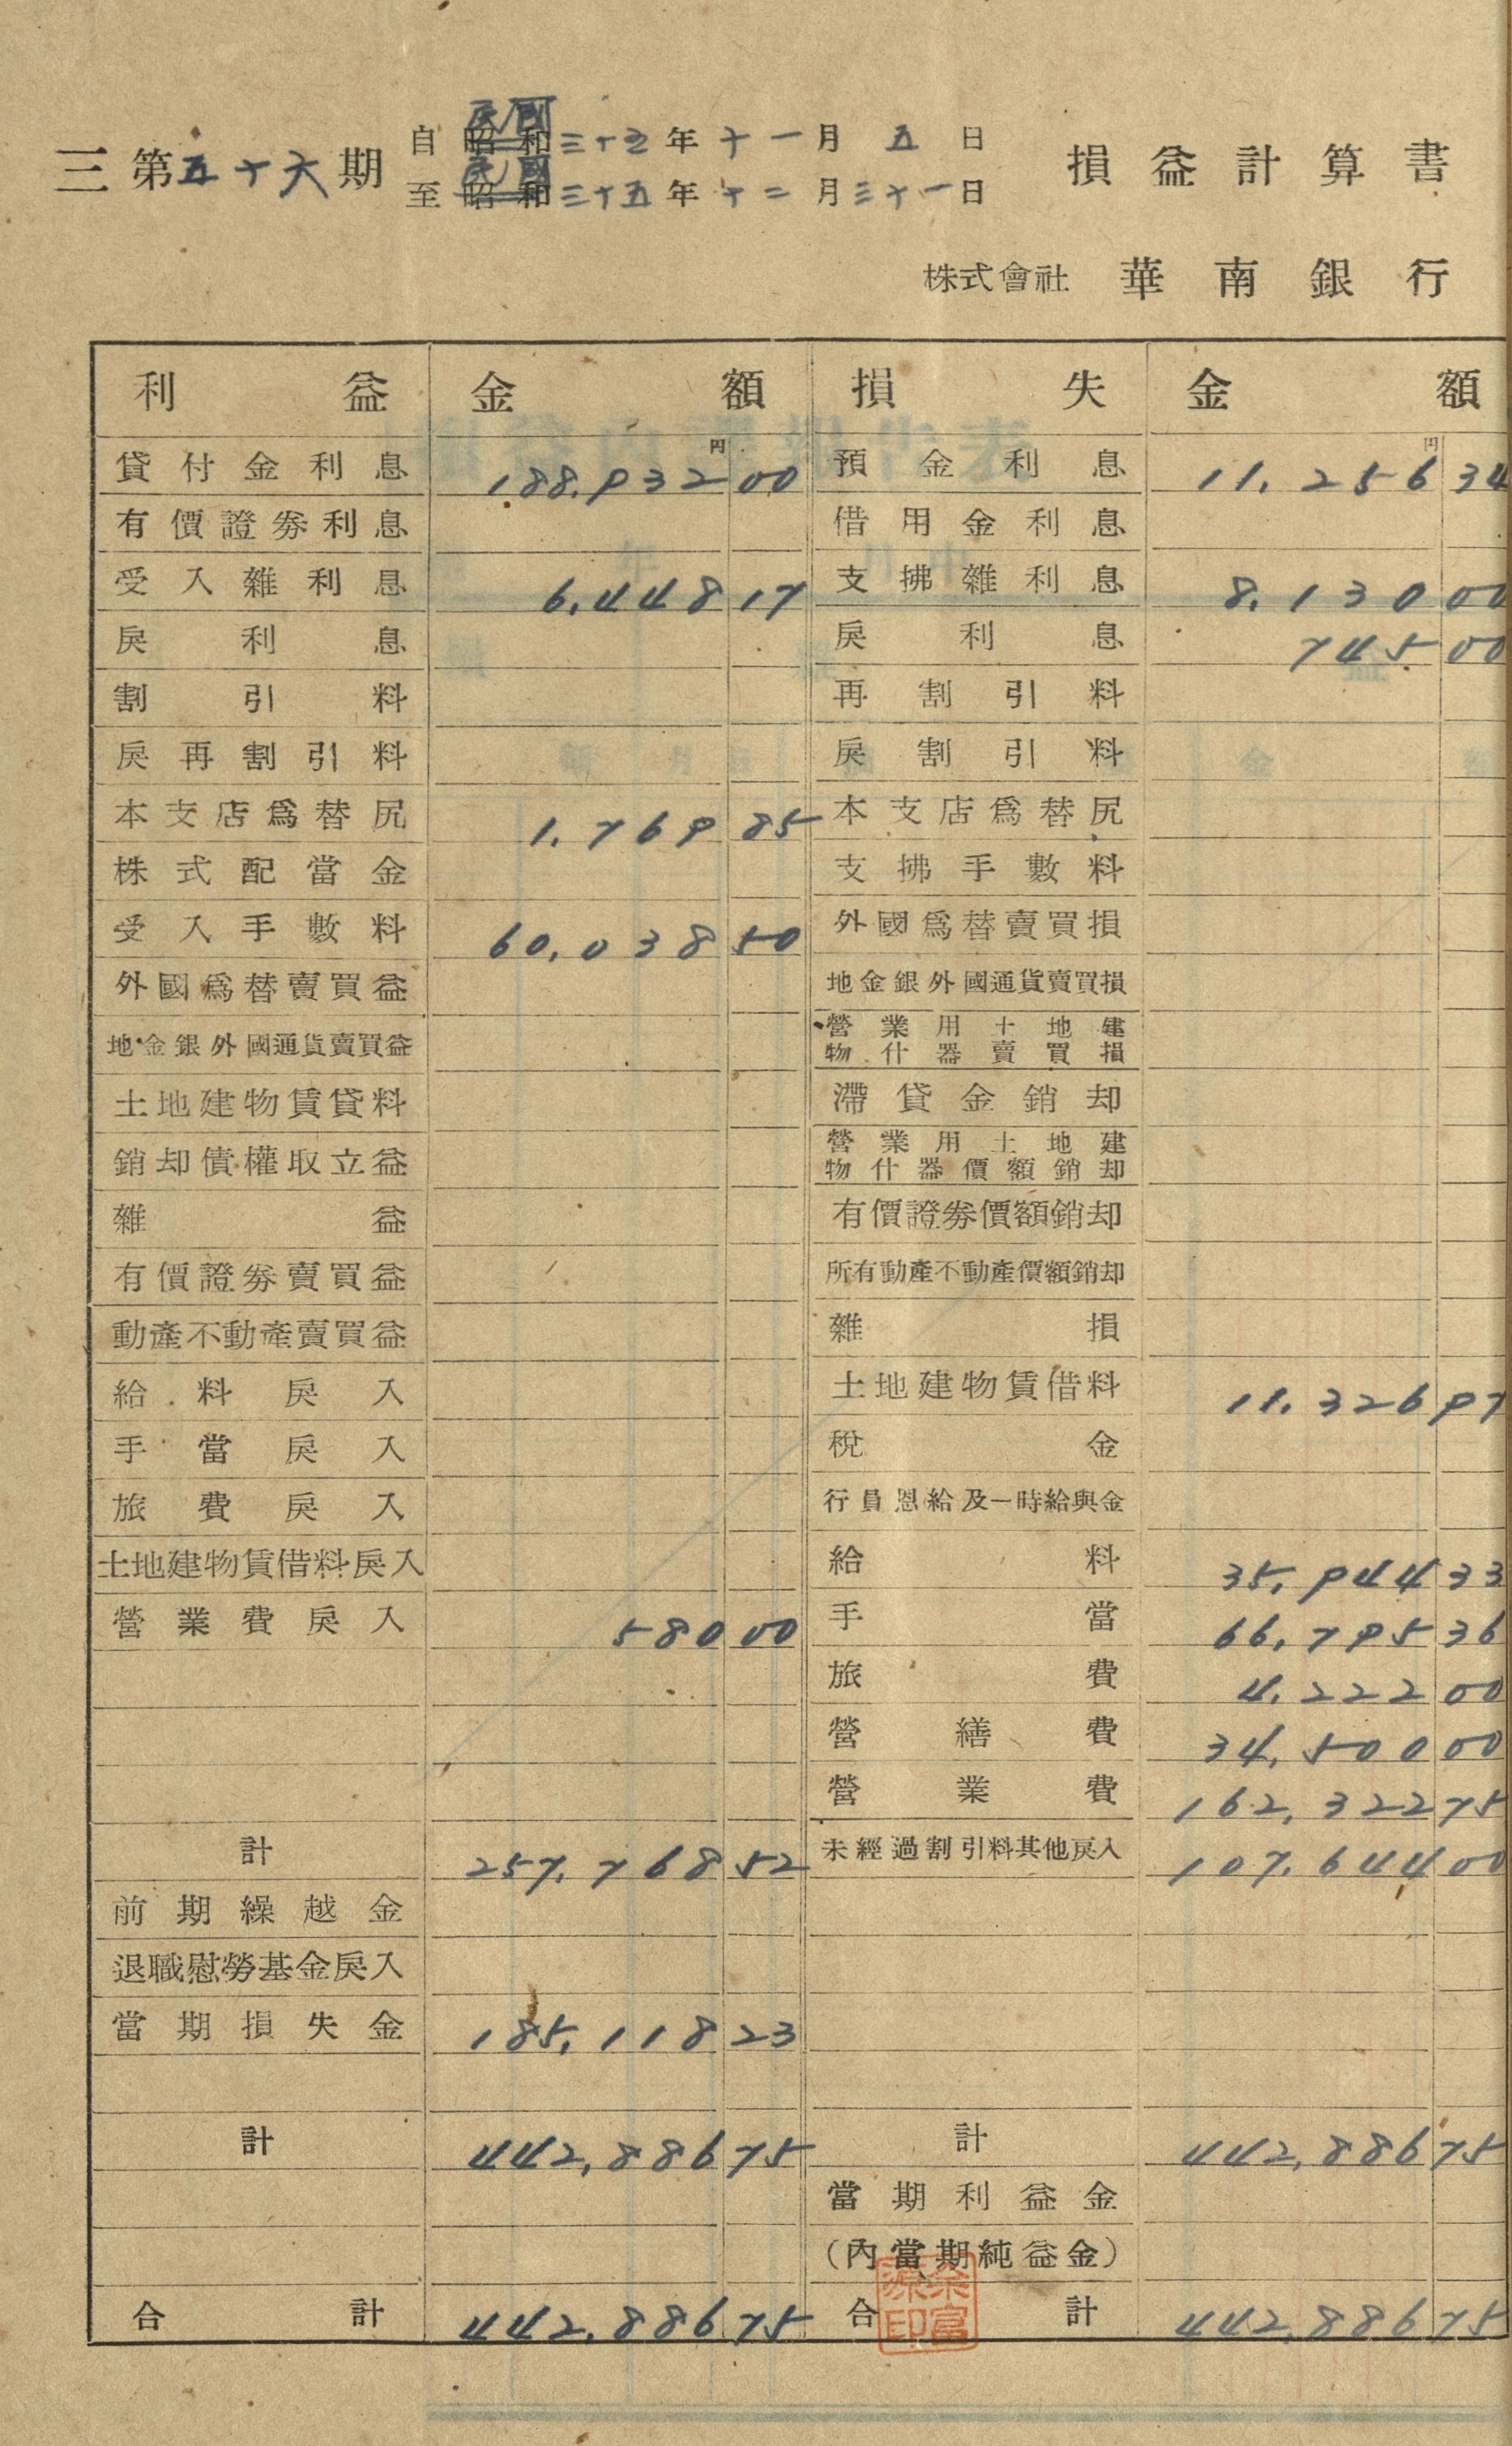 三 第五十六期 自民國三十五年十一月五日
至民國三十五年十二月三十一日 損益計算書
株式會社 華南銀行
利益 金額 損失 金額
円 円
貸付金利息 188,932 00 預金利息 11,256 34
有價證券利息 借用金利息
受入雜利息 6,448 17 支拂雜利息 8,130 00
戾利息 戾利息 745 00
割引料 再割引料
戾再割引料 戾割引料
本支店爲替尻 1,769 85 本支店爲替尻
株式配當金 支拂手數料
受入手數料 60,038 50 外國爲替賣買損
外國爲替賣買益 地金銀外國通貨賣買損
地金銀外國通貨賣買益 營業用土地建
物什器賣買損
土地建物賃貸料 滯貸金銷却
銷却債權取立益 營業用土地建
物什器價額銷却
雜益 有價證券價額銷却
有價證券賣買益 所有動產不動產價額銷却
動產不動產賣買益 雜損
給料戾入 土地建物賃借料 11,326 97
手當戾入 稅金
旅費戾入 行員恩給及一時給與金
土地建物賃借料戾入 給料 35,944 33
營業費戾入 580 00 手當 66,795 36
旅費 4,222 00
營繕費 34,500 00
營業費 162,322 75
計 257,768 52 未經過割引料其他戾入 107,644 00
前期繰越金
退職慰勞基金戾入
當期損失金 185,118 23
計 442,886 75 計 442,886 75
當期利益金
(內當期純益金)
合計 442,886 75 合計 442,886 75
余富
源印